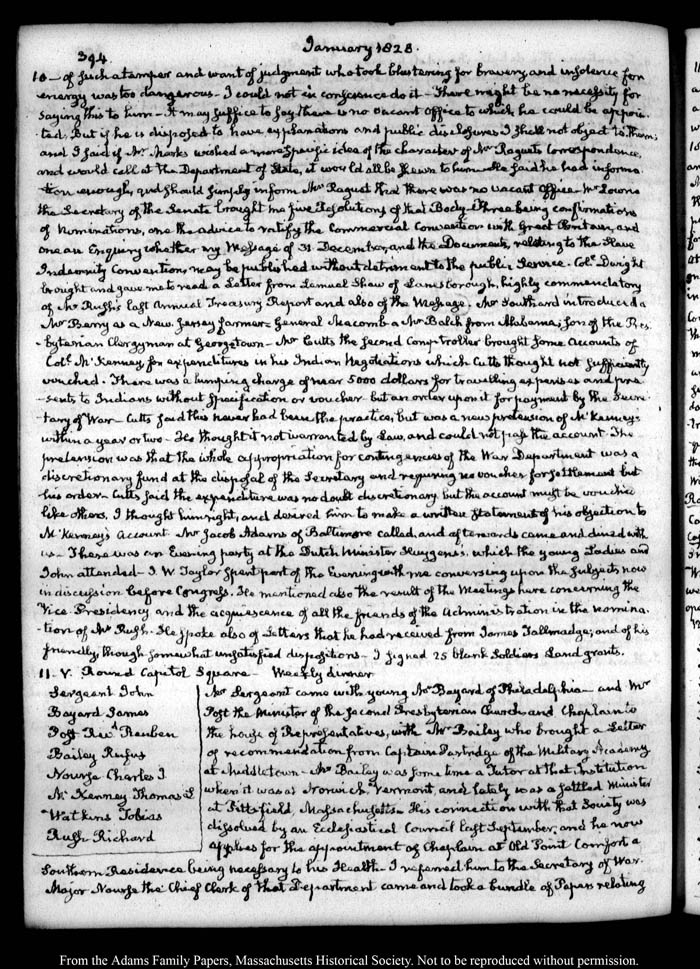 394
January 1828.
10 — of such a temper and want of judgment who took blustering for bravery and insolence for
energy was too dangerous — I could not in conscience do it — There might be no necessity for
saying this to him — It may suffice to say there is no vacant office to which he could be appoin-
ted. But if he is disposed to have explanations and public disclosures I shall not object to them;
and I said if Mr. Marks wished a more specific idea of the character of Mr Raguet's Correspondence,
and would call at the Department of State, it would all be shewn to him. He said he had informa-
tion enough, and should simply inform Mr Raguet that there was no vacant Office — Mr Lowrie
the Secretary of the Senate brought me five Resolutions of that Body — Three being confirmations
of Nominations, one the advice to ratify the Commercial Convention with Great Britain, and
one an Enquiry whether my Message of 31. December, and the Documents, relating to the Slave
Indemnity Convention, may be published without detriment to the public Service. Col. Dwight
brought and gave me to read a Letter from Lemuel Shaw of Lanesborough, highly commendatory
of Mr Rush's last Annual Treasury Report and also of the Message. Mr Southard introduced a
Mr Berry as a New Jersey farmer — General Macomb a Mr Balch from Alabama; son of the Pres-
-byterian Clergyman at Georgetown — Mr Cutts the second Comptroller brought some accounts of
Col. McKenney for expenditures in his Indian Negotiations which Cutts thought not sufficiently
vouched. There was a lumping charge of near 5000 dollars for travelling expenses and pre-
-sents to Indians without specification or voucher but an order upon it for payment by the Secre-
-tary of War — Cutts said this never had been the practice, but was a new pretension of McKenney's
within a year or two — He thought it not warranted by Law, and could not pass the account. The
pretension was that the whole appropriation for contingencies of the War Department was a
discretionary fund at the disposal of the Secretary and requiring no voucher for settlement but
his order — Cutts said the expenditure was no doubt discretionary but the account must be vouched
like others. I thought him right, and desired him to make a written statement of his objection to
McKenney's Account. Mr Jacob Adams of Baltimore called, and afterwards came and dined with
us — There was an Evening party at the Dutch Minister Huygens's. which the young Ladies and
John attended — J. W. Taylor spent part of the Evening with me conversing upon the subjects now
in discussion before Congress. He mentioned also the result of the Meetings here concerning the
Vice Presidency and the acquiescence of all the friends of the Administration in the nomina-
-tion of Mr Rush. He spoke also of Letters that he had received from James Tallmadge; and of his
friendly, though somewhat unsatisfied dispositions. — I signed 25 blank Soldiers Land grants.
11. V. Round Capitol Square — Weekly dinner
Sergeant John
Bayard James
Post Revd Reuben
Bailey Rufus
Nourse Charles J.
McKenney Thomas L
Watkins Tobias
Rush Richard
Mr Sergeant came with young Mr Bayard of Philadelphia — and Mr
Post the Minister of the second Presbyterian Church and Chaplain to
the house of Representatives, with Mr Bailey who brought a Letter
of recommendation from Captain Partridge of the Military Academy
at Middletown — Mr Bailey was some time a Tutor at that Institution
when it was at Norwich, Vermont, and lately was a settled Minister
at Pittsfield, Massachusetts — His connection with that Society was
dissolved by an Ecclesiastical Council last September, and he now
applies for the appointment of Chaplain at Old Point Comfort a
Southern Residence being necessary to his Health — I referred him to the Secretary of War.
Major Nourse the Chief Clerk of that Department came and took a bundle of Papers relating
From the Adams Family Papers, Massachusetts Historical Society. Not to be reproduced without permission.